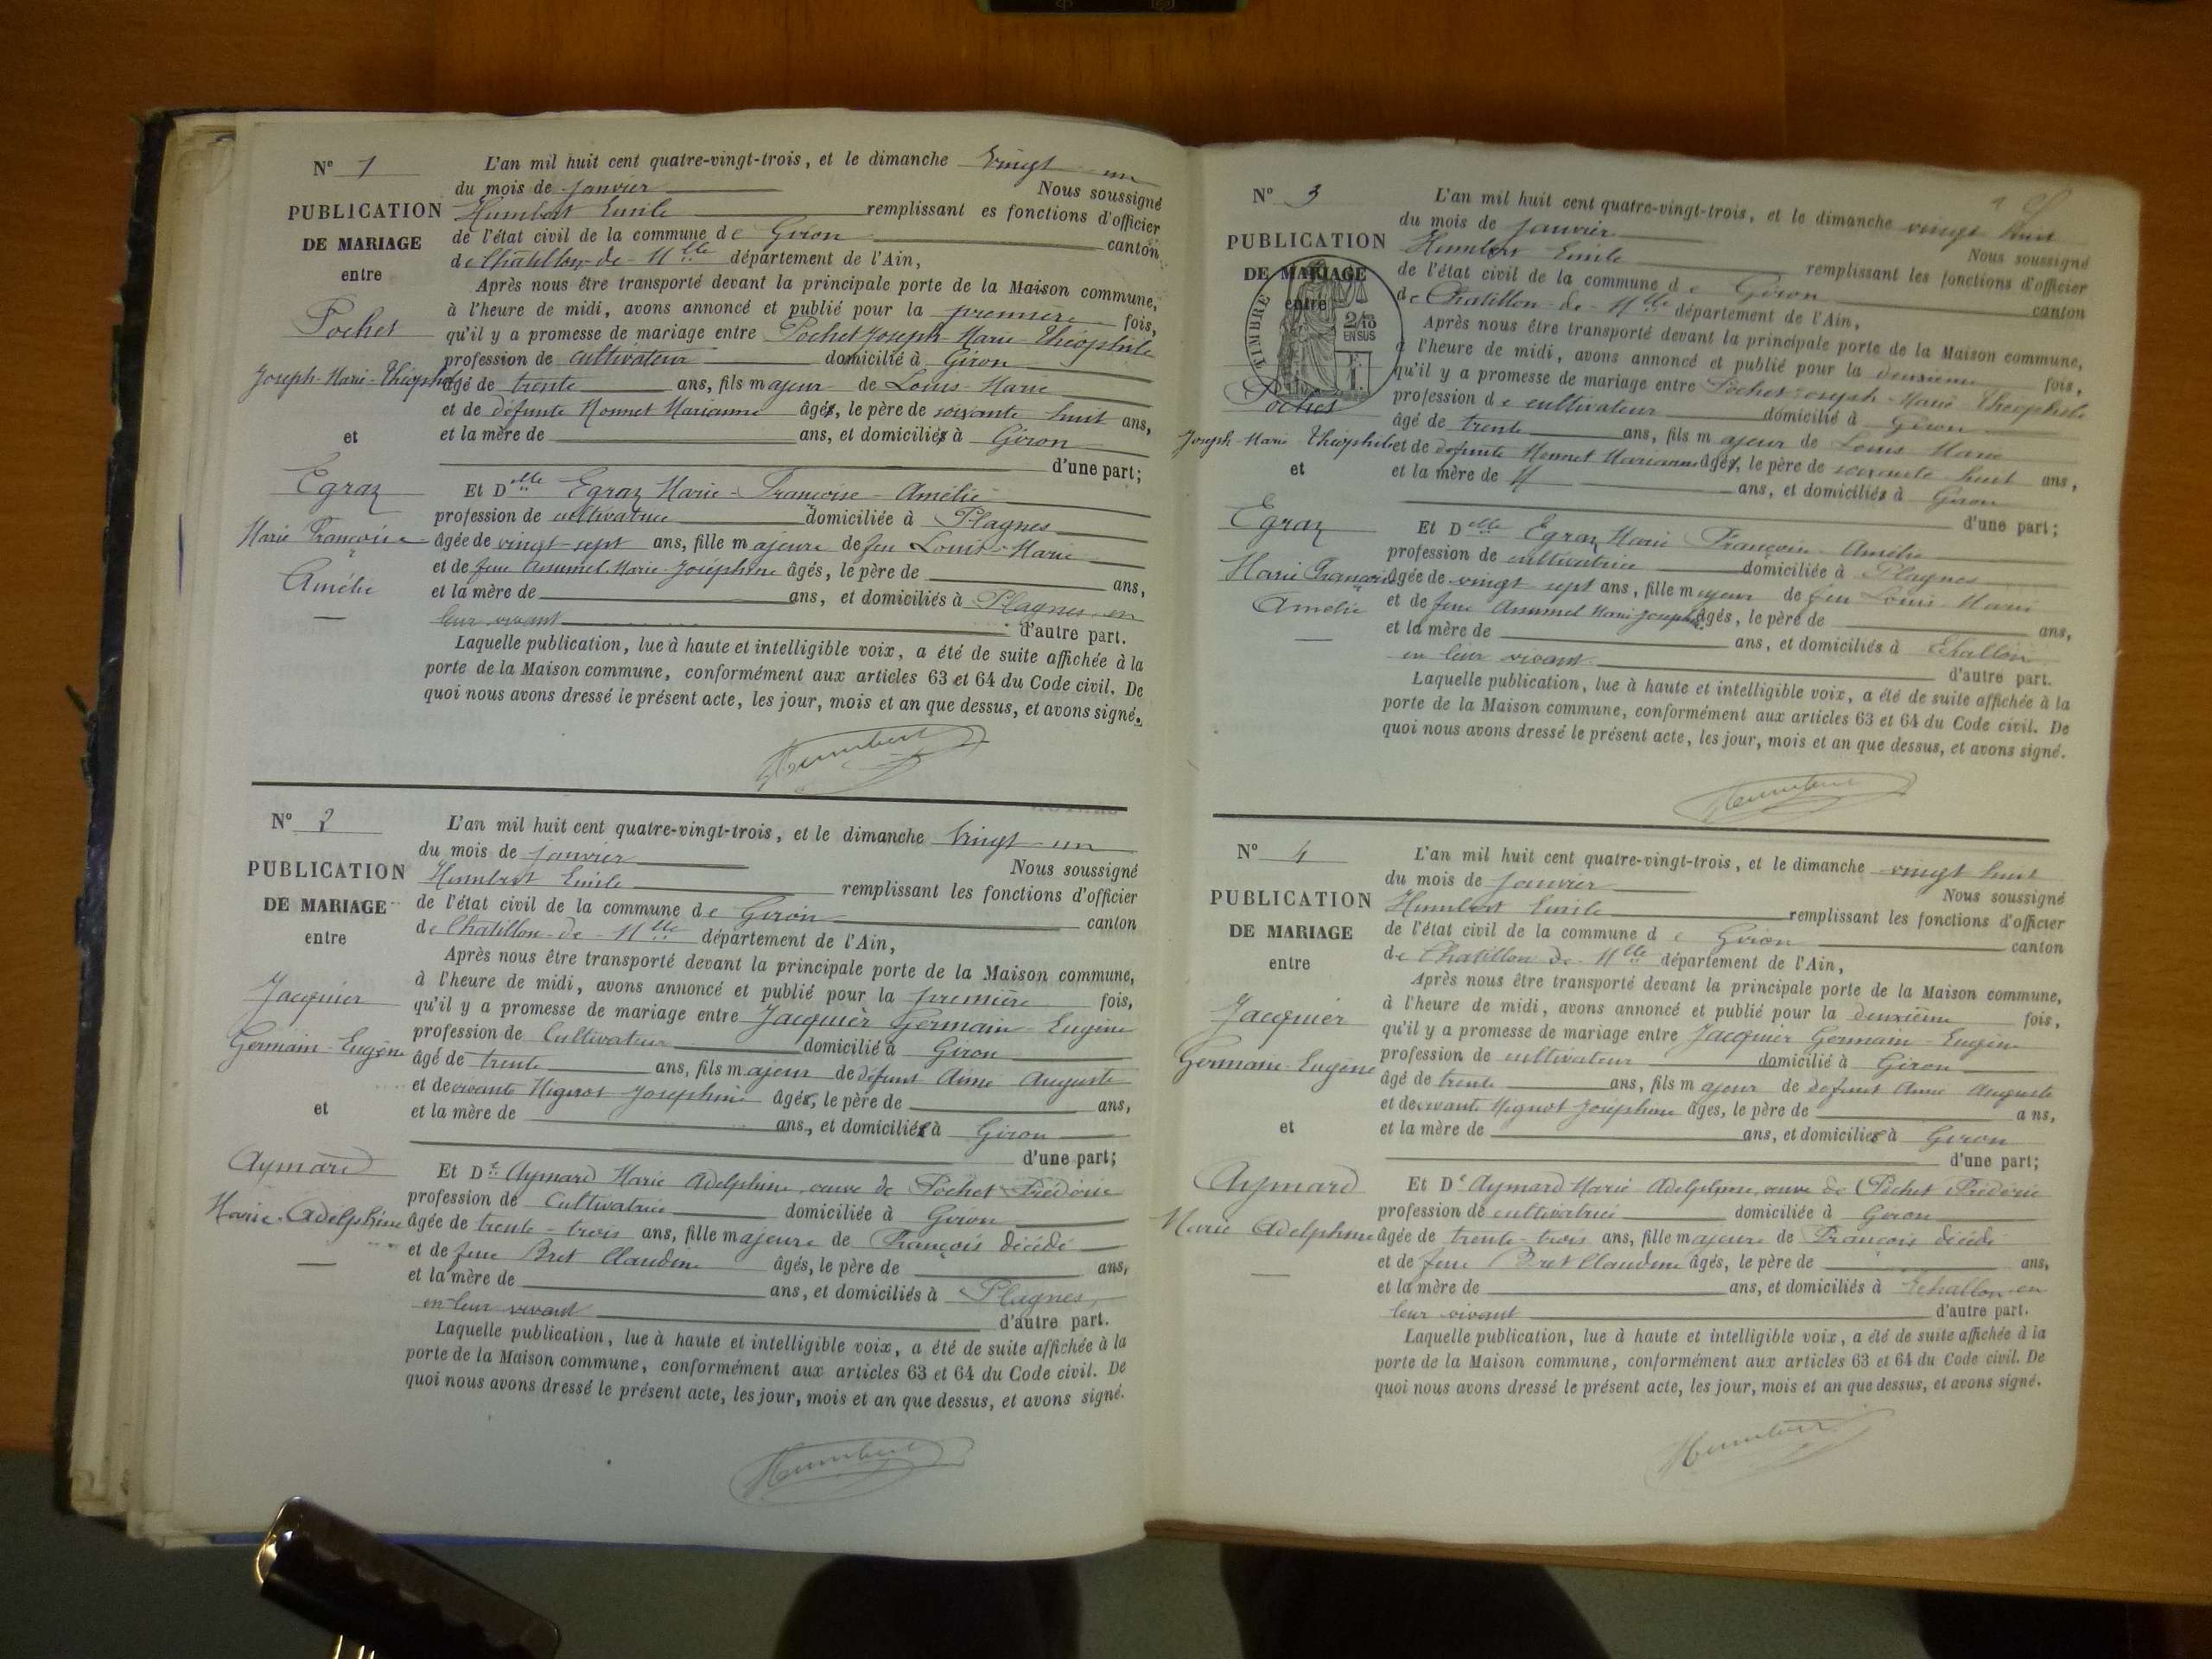 N° 1
PUBLICATION
DE MARIAGE
entre
Pochet
Joseph-Marie-Théophile
et
Egraz
Marie Françoise
Amélie
L'an mil huit cent quatre-vingt-trois, et le dimanche vingt-un
du mois de Janvier Nous soussigné
Humbert Emile remplissant es fonctions d'officier
de l'état civil de la commune de Giron canton
de Châtillon-de-Mlle département de l'Ain,
Après nous être transporté devant la principale porte de la Maison commune,
à l'heure de midi, avons annoncé et publié pour la première fois,
qu'il y a promesse de mariage entre Pochet Joseph-Marie-Théophile
profession de cultivateur domicilié à Giron
âgé de trente ans, fils majeur de Louis-Marie
et de défunte Monnet Marianne âgés, le père de soixante huit ans,
et la mère de ans, et domiciliés à Giron
d'une part;
Et Dlle Egraz Marie-Françoise-Amélie
profession de cultivatrice domiciliée à Plagnes
âgée de vingt-sept ans, fille majeure de feu Louis-Marie
et de feue Marie-Joséphine âgés, le père de ans,
et la mère de ans, et domiciliés à Plagnes en
leur vivant d'autre part.
Laquelle publication, lue à haute et intelligible voix, a été de suite affichée à la
porte de la Maison commune, conformément aux articles 63 et 64 du Code civil. De
quoi nous avons dressé le présent acte, les jour, mois et an que dessus, et avons signé.
Humbert
N° 2
PUBLICATION
DE MARIAGE
entre
Jacquier
Germain-Eugène
et
Aymard
Marie-Adelphine
L'an mil huit cent quatre-vingt-trois, et le dimanche vingt-un
du mois de Janvier Nous soussigné
Humbert Emile remplissant les fonctions d'officier
de l'état civil de la commune de Giron canton
de Chatillon-de-Mlle département de l'Ain,
Après nous être transporté devant la principale porte de la Maison commune,
à l'heure de midi, avons annoncé et publié pour la première fois,
qu'il y a promesse de mariage entre Jacquier Germain-Eugène
profession de Cultivateur domicilié à Giron
âgé de trente ans, fils majeur de défunt Aimé Auguste
et de vivante Mignot Joséphine âgés, le père de ans,
et la mère de ans, et domiciliés à Giron
d'une part;
Et De Aymard Marie Adelphine, veuve de Pochet Frédéric
profession de Cultivatrice domiciliée à Giron
âgée de trente-trois ans, fille majeure de François décédé
et de feue Bret Claudine âgés, le père de ans,
et la mère de ans, et domiciliés à Plagnes,
en leur vivant d'autre part.
Laquelle publication, lue à haute et intelligible voix, a été de suite affichée à la
porte de la Maison commune, conformément aux articles 63 et 64 du Code civil. De
quoi nous avons dressé le présent acte, les jour, mois et an que dessus, et avons signé.
Humbert
N° 3
PUBLICATION
DE MARIAGE
entre
TIMBRE
2/10
EN SUS
Pochet
Joseph-Marie Théophile
et
Egraz
Marie Françoise
Amélie
L'an mil huit cent quatre-vingt-trois, et le dimanche vingt huit
du mois de Janvier Nous soussigné
Humbert Emile remplissant les fonctions d'officier
de l'état civil de la commune de Giron canton
de Chatillon-de-Mlle département de l'Ain,
Après nous être transporté devant la principale porte de la Maison commune,
à l'heure de midi, avons annoncé et publié pour la deuxième fois,
qu'il y a promesse de mariage entre Pochet Joseph-Marie Théophile
profession de cultivateur domicilié à Giron
âgé de trente ans, fils majeur de Louis Marie
et de défunte Monnet Marianne âgés, le père de soixante huit ans,
et la mère de ans, et domiciliés à Giron
d'une part;
Et Dlle Egraz Marie Françoise-Amélie
profession de cultivatrice domiciliée à Plagnes
âgée de vingt sept ans, fille majeur de feu Louis Marie
et de feue Marie-Joséphine âgés, le père de ans,
et la mère de ans, et domiciliés à Echallon
en leur vivant d'autre part.
Laquelle publication, lue à haute et intelligible voix, a été de suite affichée à la
porte de la Maison commune, conformément aux articles 63 et 64 du Code civil. De
quoi nous avons dressé le présent acte, les jour, mois et an que dessus, et avons signé.
Humbert
N° 4
PUBLICATION
DE MARIAGE
entre
Jacquier
Germain-Eugène
et
Aymard
Marie Adelphine
L'an mil huit cent quatre-vingt-trois, et le dimanche vingt huit
du mois de Janvier Nous soussigné
Humbert Emile remplissant les fonctions d'officier
de l'état civil de la commune de Giron canton
de Chatillon de Mlle département de l'Ain,
Après nous être transporté devant la principale porte de la Maison commune,
à l'heure de midi, avons annoncé et publié pour la deuxième fois,
qu'il y a promesse de mariage entre Jacquier Germain-Eugène
profession de cultivateur domicilié à Giron
âgé de trente ans, fils majeur de défunt Aimé Auguste
et de vivante Mignot Joséphine âgés, le père de ans,
et la mère de ans, et domiciliés à Giron
d'une part;
Et De Aymard Marie Adelphine, veuve de Pochet Frédéric
profession de cultivatrice domiciliée à Giron
âgée de trente-trois ans, fille majeure de François décédé
et de feue Bret Claudine âgés, le père de ans,
et la mère de ans, et domiciliés à Echallon en
leur vivant d'autre part.
Laquelle publication, lue à haute et intelligible voix, a été de suite affichée à la
porte de la Maison commune, conformément aux articles 63 et 64 du Code civil. De
quoi nous avons dressé le présent acte, les jour, mois et an que dessus, et avons signé.
Humbert